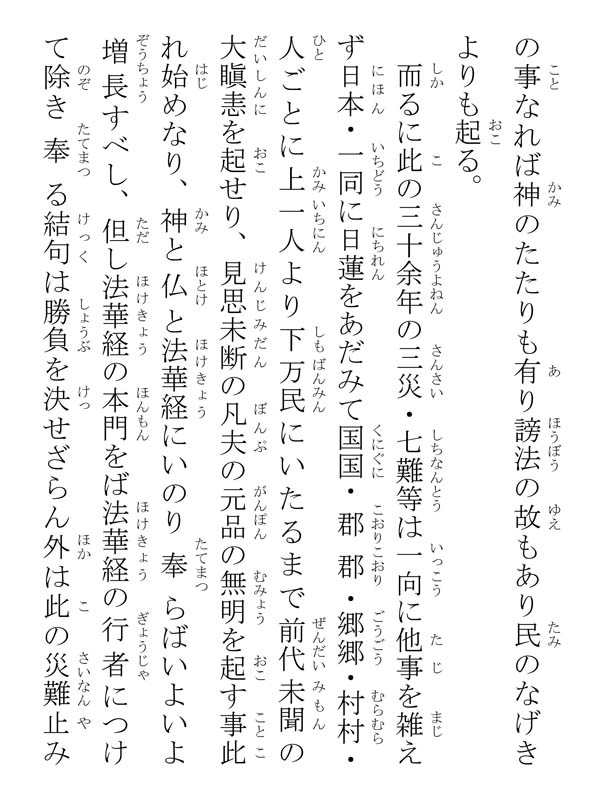 の事なれば神のたたりも有り謗法の故もあり民のなげき
よりも起る。
而るに此の三十余年の三災・七難等は一向に他事を雑え
ず日本・一同に日蓮をあだみて国国・郡郡・郷郷・村村・
人ごとに上一人より下万民にいたるまで前代未聞の
大瞋恚を起せり、見思未断の凡夫の元品の無明を起す事此
れ始めなり、神と仏と法華経にいのり奉らばいよいよ
増長すべし、但し法華経の本門をば法華経の行者につけ
て除き奉る結句は勝負を決せざらん外は此の災難止み